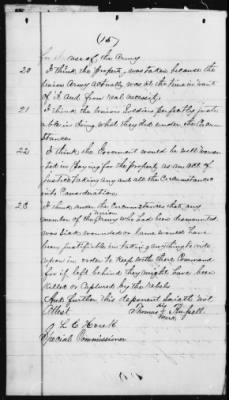 (15)
use of the Army
20 I think the property was taken because the
Union Army actually was at the time in want
of it And from real necessity.
21 I think the Union Soldiers perfectly justi
able in doing what they did under the Circum
stances
22 I think the Government would be well warran
ted in Paying for the property as an act of
justice taking any and all the Circumstances
into Consideration
23 I think under the Circumstances that any
member of the Union Army who had been dismounted
was sick wounded or lame would have
been justifiable in taking anything to ride
upon in order to keep with their Command
for if left behind they might have been
Killed or Captured by the rebels
And further this deponent saith not
Attest Thomas his mark Russell
Special Commissioner